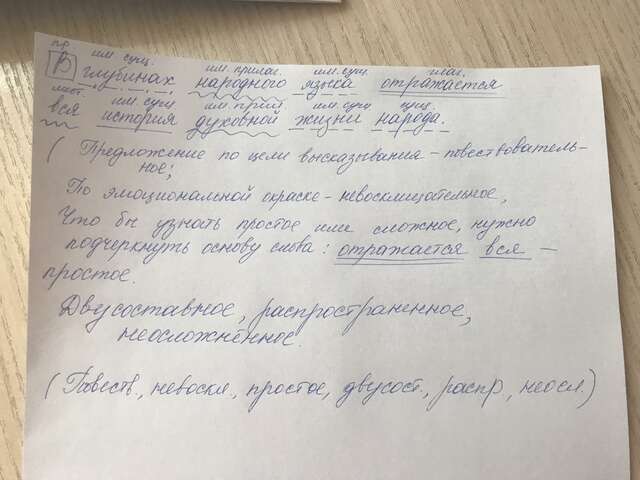 пр. им. сущ. им. прилаг. им. сущ. глаг.
В глубинах народного языка отражается
мест. им. сущ им. прил. им. сущ сущ.
вся история духовной жизни народа.
( Предложение по цели высказывания - повествователь-
ное;
По эмоциональной окраске - невосклицательное,
Что бы узнать простое или сложное, нужно
подчеркнуть основу слова: отражается вся -
простое.
Двусоставное, распространенное,
неосложнённое.
( Повеств., невоскл., простое, двусост., распр., неосл.)